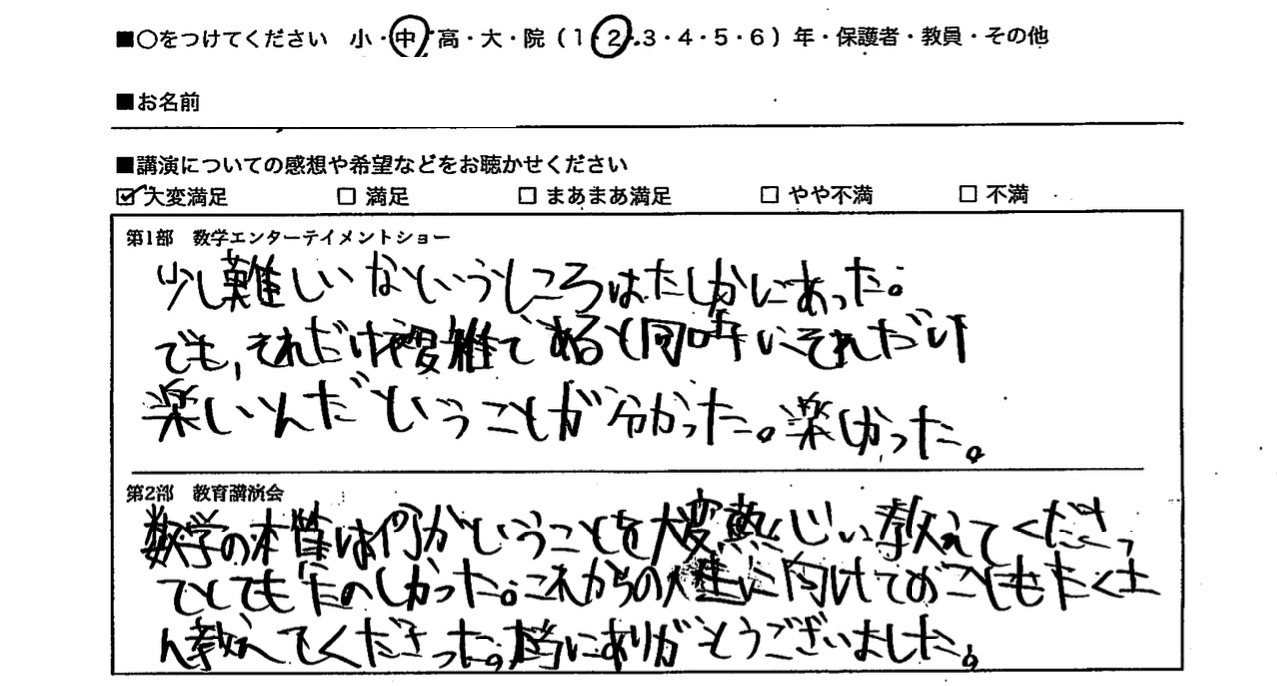 ■○をつけてください 小・中・高・大・院（1・2・3・4・5・6）年・保護者・教員・その他
■お名前
■講演についての感想や希望などをお聴かせください
☑大変満足 □ 満足 □ まあまあ満足 □ やや不満 □ 不満
第1部 数学エンターテイメントショー
少し難しいなというところはたしかにあった。
でも,それだけ複雑であると同時にそれだけ
楽しいんだということが分かった。楽しかった。
第2部 教育講演会
数学の本質は何かということを大変熱心に教えてくださっ
てとてもたのしかった。これからの人生に向けてのこともたくさ
ん教えてくださった。本当にありがとうございました。